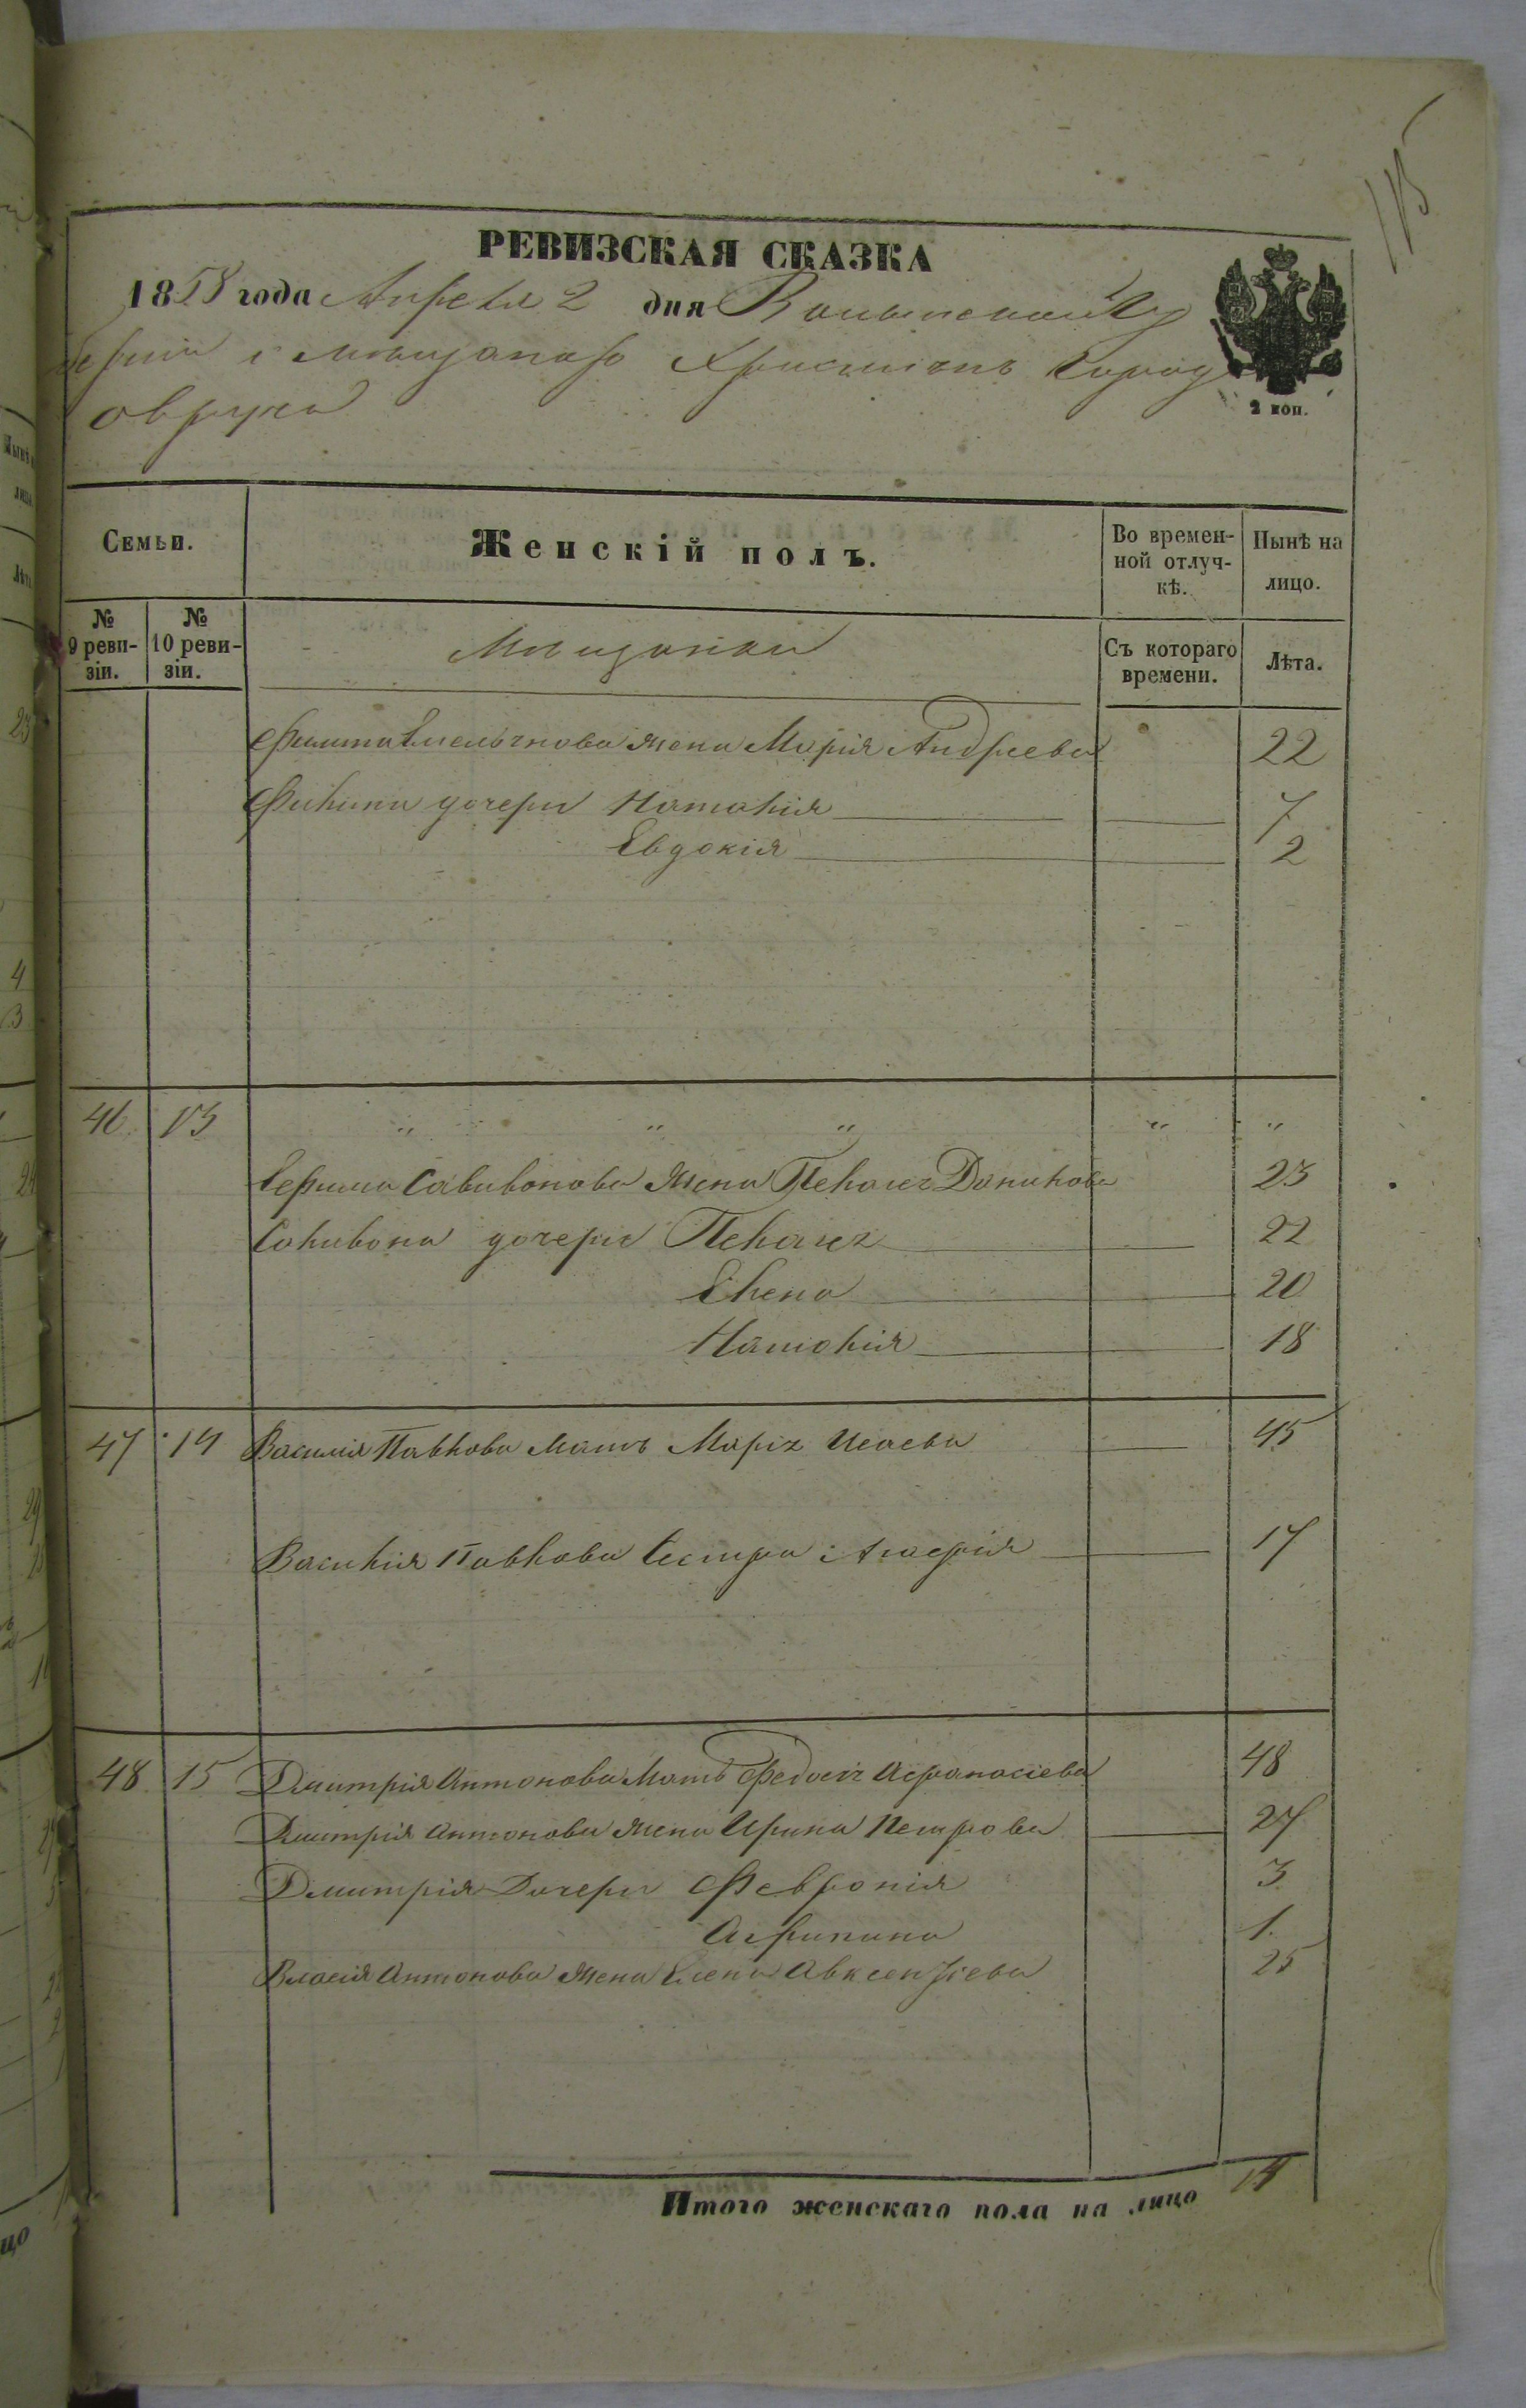 115
РЕВИЗСКАЯ СКАЗКА
1858 года Апреля 2 дня Волынской Гу
берніи о мѣщанахъ Христіянъ Города
Овруча
2 коп.
Семьи.
Женскій полъ.
Во времен-
ной отлуч-
кѣ.
Нынѣ на
лицо.
№
9 реви-
зіи.
№
10 реви-
зіи.
Мѣщанки
Съ котораго
времени.
Лѣта.
Филипа Емельянова жена Марія Андреева 22
Филипа дочери Наталія 7
Евдокія 2
46. 13 " " " " "
Ефима Саливонова жена Пелагея Данилова 23
Саливона дочери Пелагея 22
Елена 20
Наталія 18
47 14 Василія Павлова Мать Марія Исаева 45
Василія Павлова Сестра 17
48 15 Дмитрія Антонова Мать Федосія Афанасіева 48
Дмитрія Антонова жена Ирина Петрова 27
Дмитрія Дочери Февронія 3
Агрипина 1.
Власія Антонова жена Елена Авксентіева 25
Итого женскаго пола на лицо 14